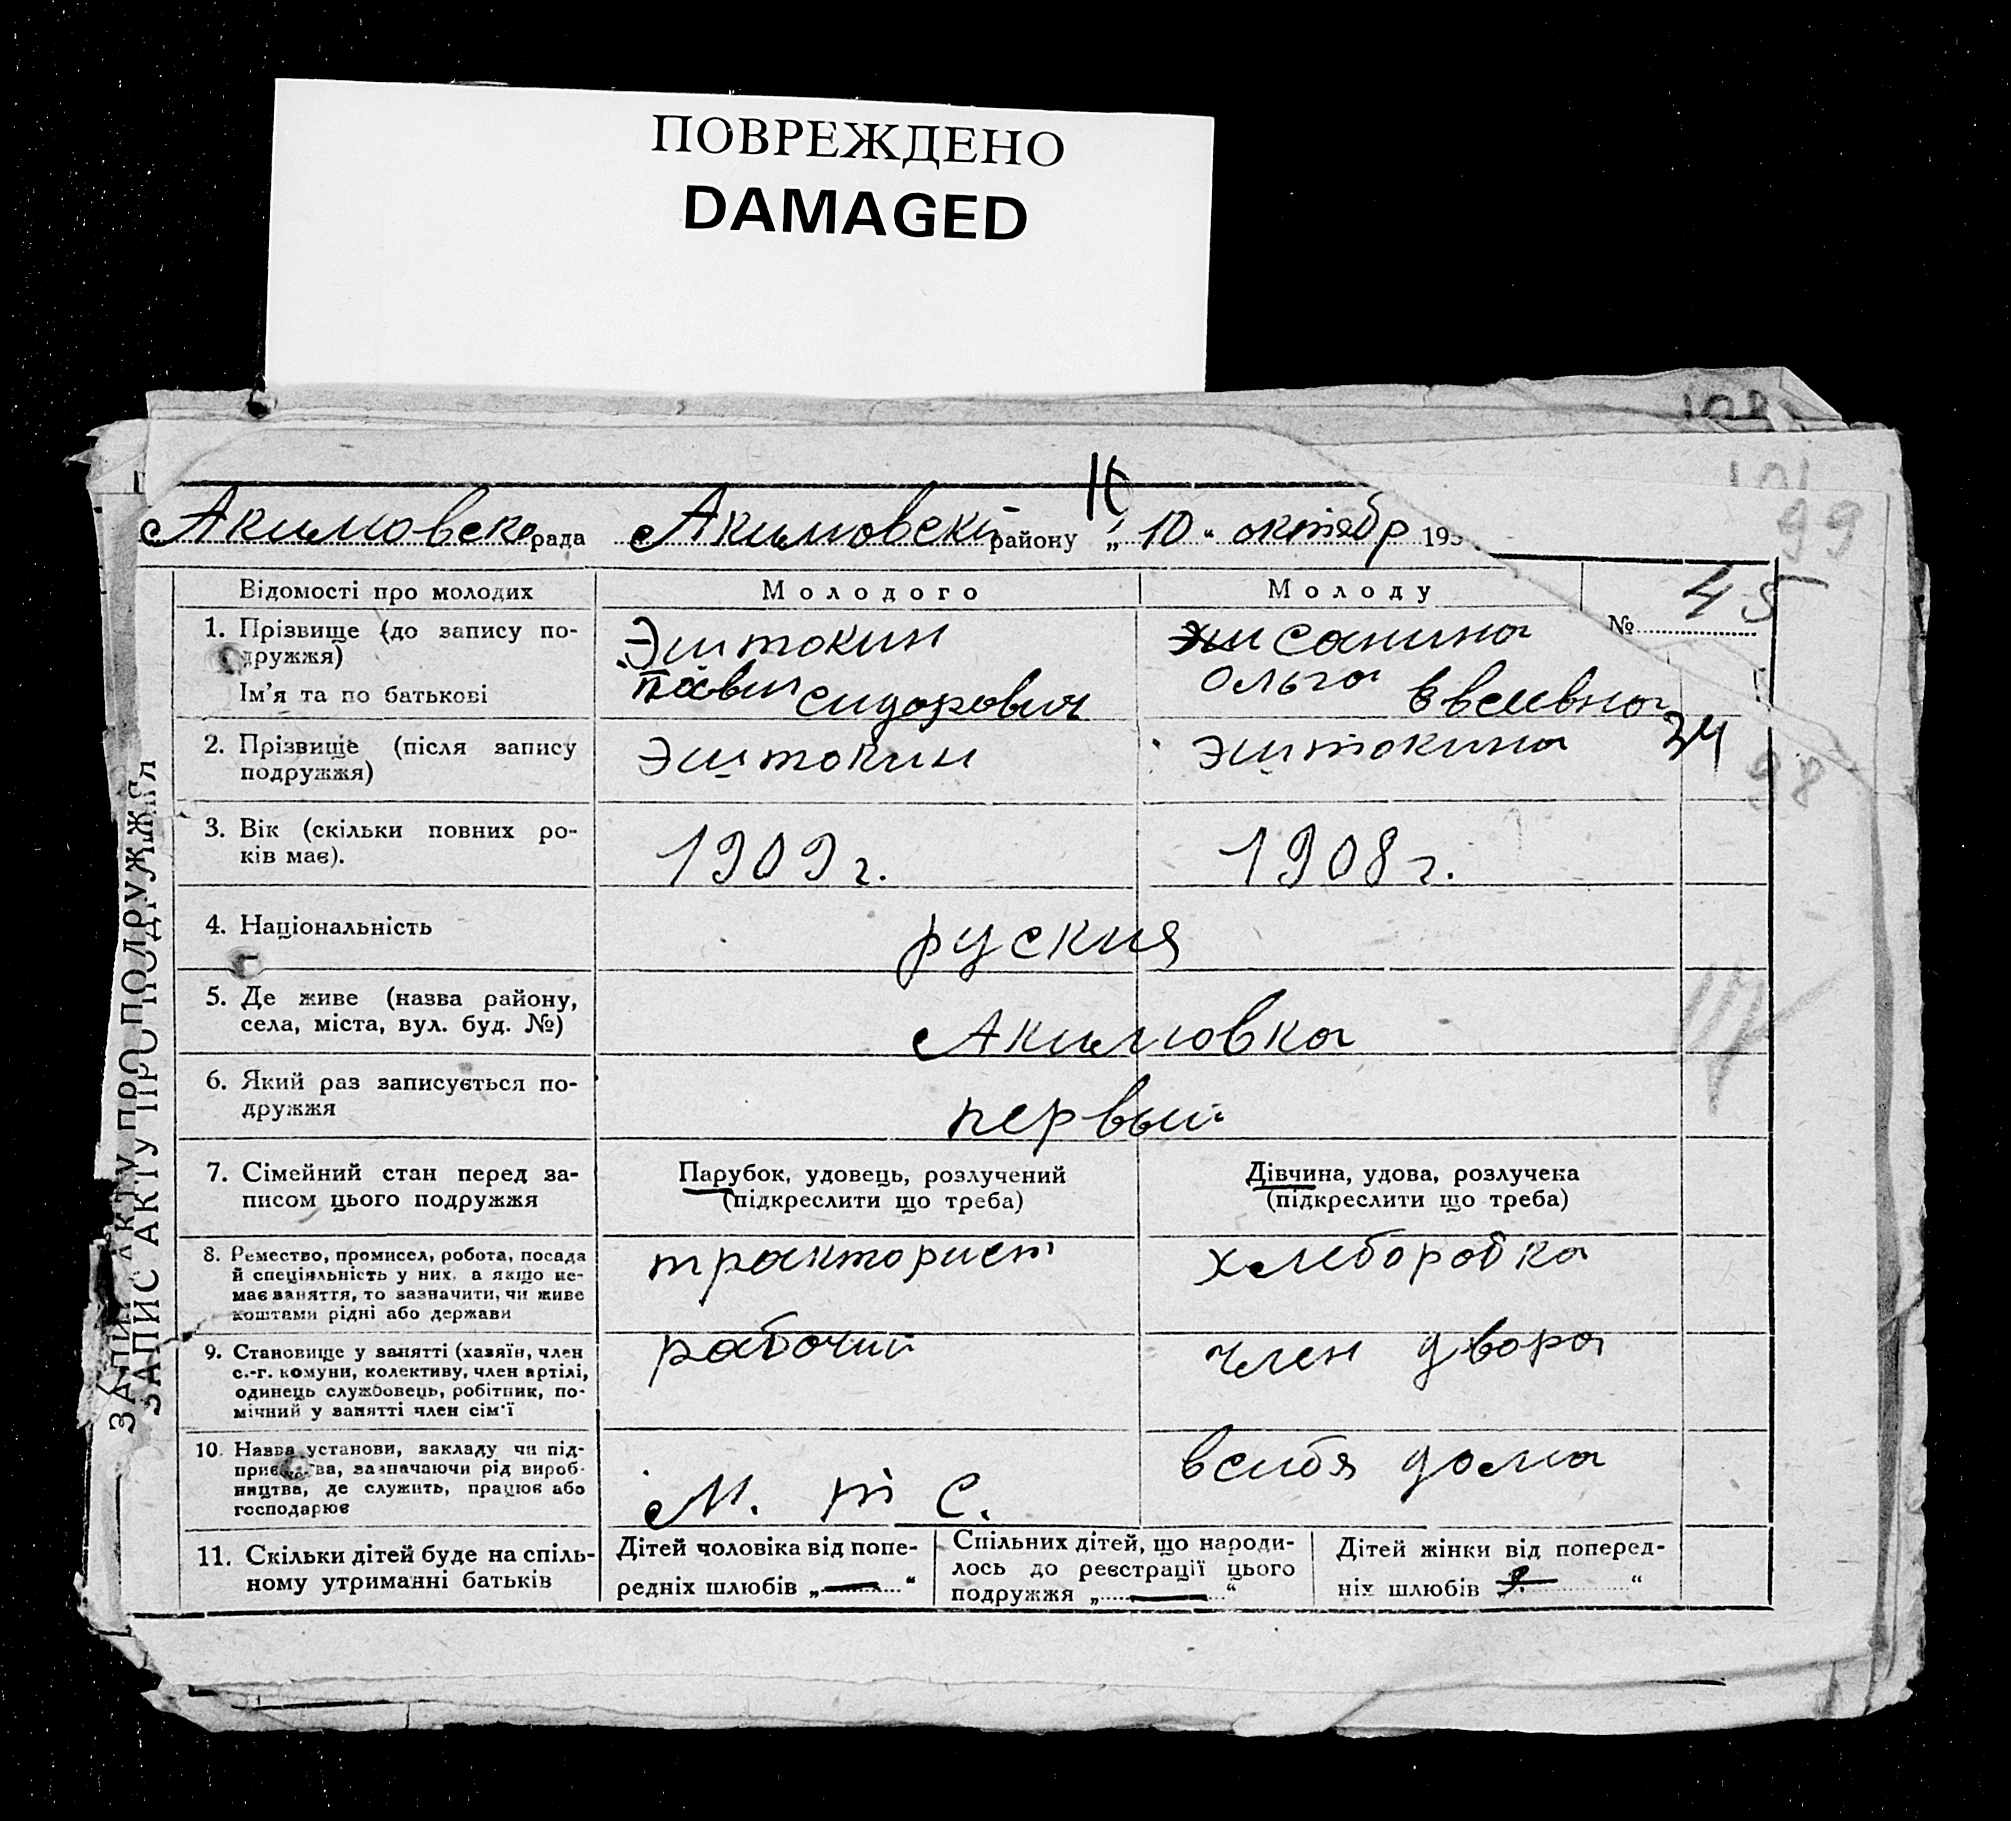 ПОВРЕЖДЕНО
DAMAGED
108
101
99
Акимовско рада Акимовский району „ 10 “ октябр 193
Відомості про молодих
Молодого
Молоду
№ 45
1. Прізвище (до запису по-
дружжя)
Ім’я та по батькові
Эштокин
Павил Сидорович
Исанина
Ольга Евсивна
2. Прізвище (після запису
подружжя)
Эштокин
Эштокина
34
98
3. Вік (скільки повних ро-
ків має).
1909 г.
1908 г.
4. Національність
руския
5. Де живе (назва району,
села, міста, вул. буд. №)
Акимовка
6. Який раз записується по-
дружжя
первый
7. Сімейний стан перед за-
писом цього подружжя
Парубок, удовець, розлучений
(підкреслити що треба)
Дівчина, удова, розлучена
(підкреслити що треба)
8. Ремество, промисел, робота, посада
й спеціяльність у них, а якщо не-
має заняття, то зазначити, чи живе
коштами рідні або держави
тракторист
хлеборобка
9. Становище у занятті (хазяїн, член
с.-г. комуни, колективу, член артілі,
одинець службовець, робітник, по-
мічний у занятті член сім’ї
рабочий
член двора
10. Назва установи, закладу чи під-
приємства, зазначаючи рід вироб-
ництва, де служить, працює або
господарює
М. Т С.
всибя дома
11. Скільки дітей буде на спіль-
ному утриманні батьків
Дітей чоловіка від попе-
редніх шлюбів „ — “
Спільних дітей, що народи-
лось до реєстрації цього
подружжя „ — “
Дітей жінки від поперед-
ніх шлюбів “
ЗАПИС АКТУ ПРО ПОДРУЖЖЯ
ЗАПИС АКТУ ПРО ПОДРУЖЖЯ